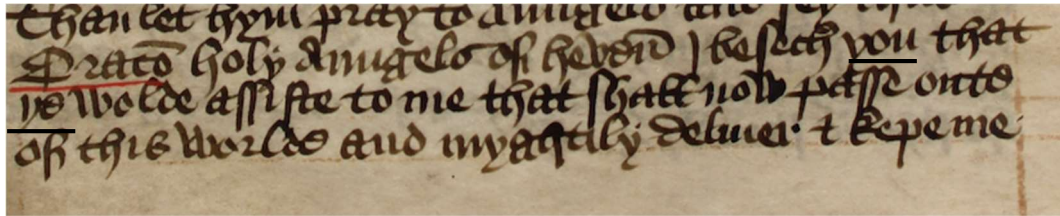 Than let hym pray to aungels and sey thus
Oracō holy Aungels of hevyn̄ I besech you that
ye wolde assiste to me that shall now passe oute
of this worlde and myghtily deliuer & kepe me